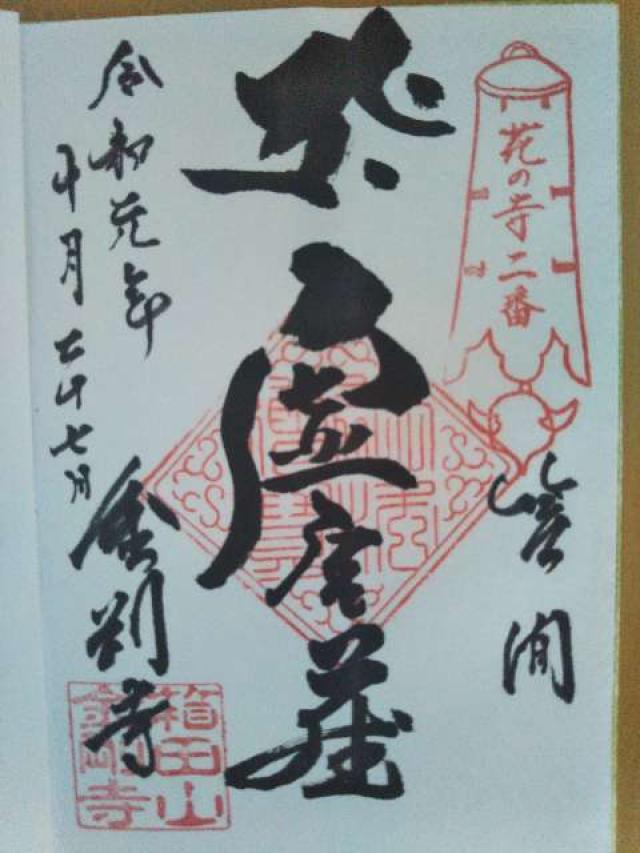 花の寺二番
笠間
虚空蔵
令和元年
十月二十七日
金剛寺
箱田山
金剛寺